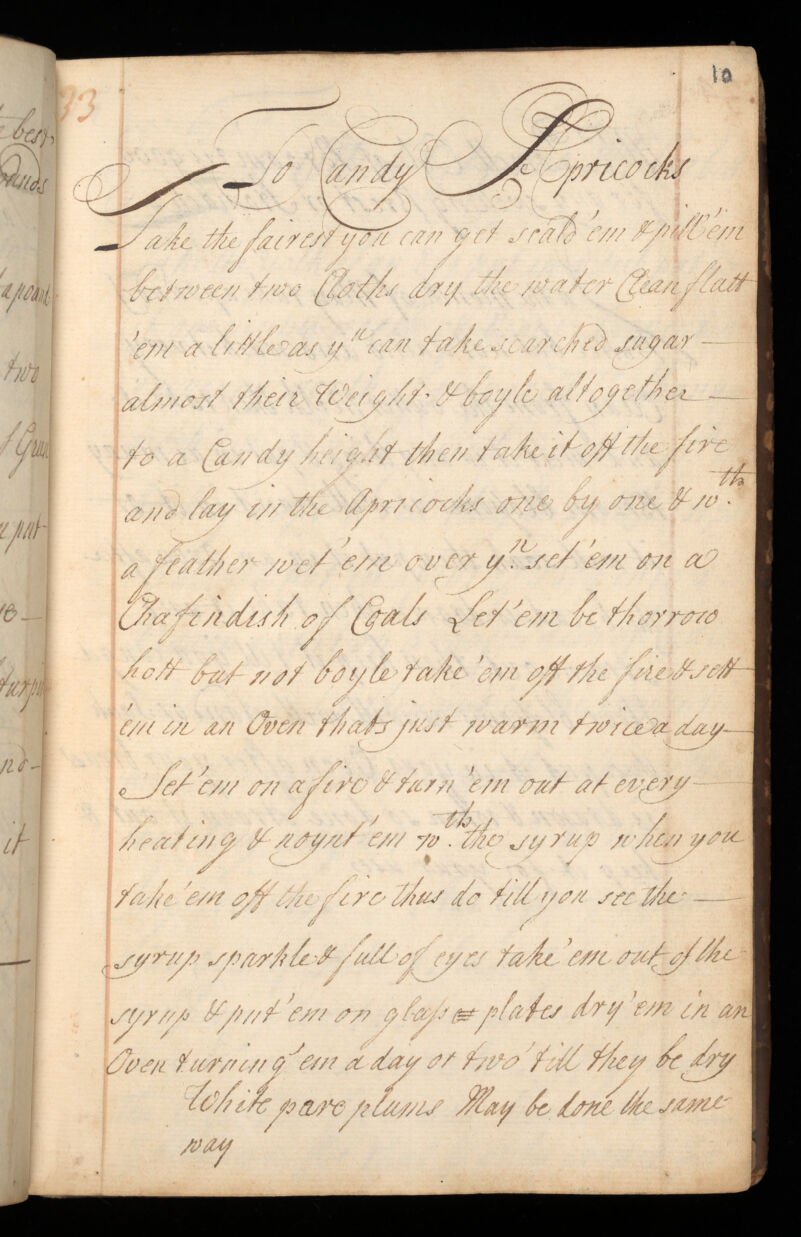 33
10
To Candy Apricocks
Take the fairest you can get scald 'em & pill 'em
between two Cloths dry the water Clean flatt
'em a little as yⁿ can take searched sugar —
almost their Weight & boyle altogether —
to a Candy height then take it off the fire
and lay in the Apricocks one by one & wᵗʰ.
a feather wet 'em over yⁿ. set 'em on a
Chafindish of Coals Let 'em be thorrow
hott but not boyle take 'em off the fire & sett
'em in an Oven thats just warm twice a day —
Set 'em on a fire & turn 'em out at every —
heating & noynt 'em wᵗʰ. the syrup when you
take 'em off the fire thus do till you see the —
syrup sparkle & full of eyes take 'em out of the
syrup & put 'em on glass plates dry 'em in an
Oven turning 'em a day or two till they be dry
White pare plums May be done the same
way
best
two
put
it